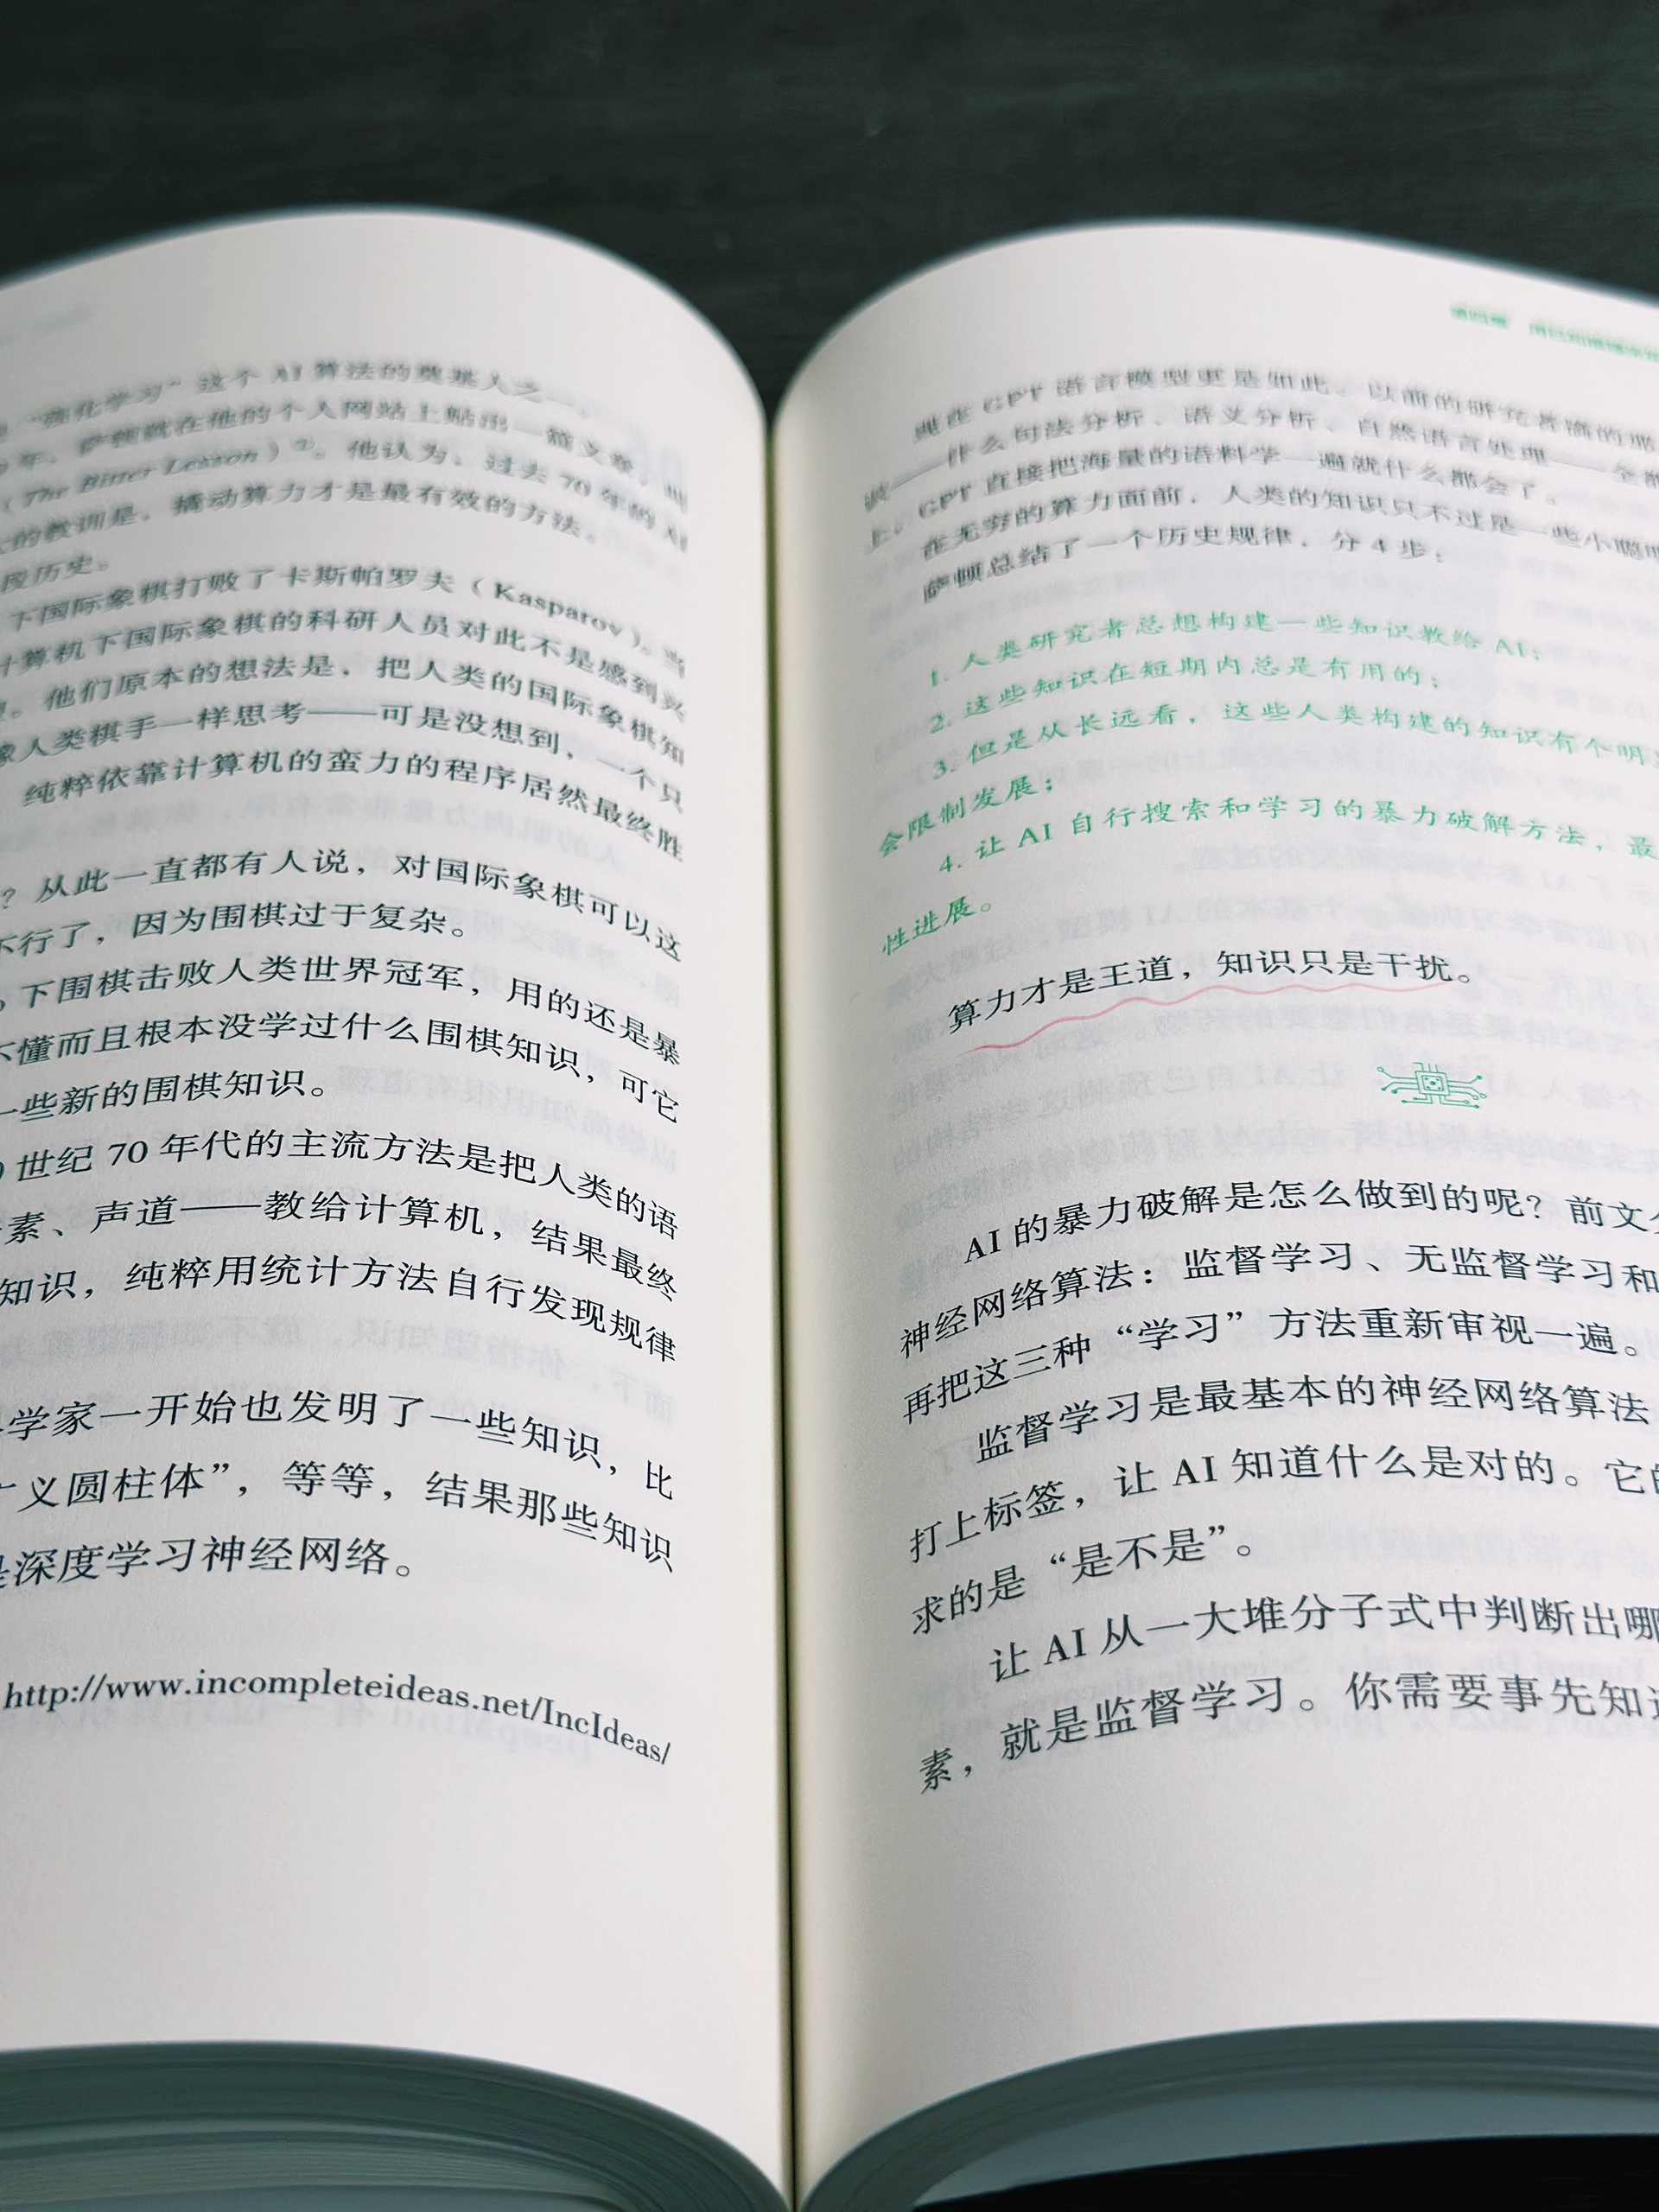 “强化学习”这个 AI 算法的奠基人之一。
年，萨顿就在他的个人网站上贴出一篇文章，
（The Bitter Lesson）②。他认为，过去 70 年的 AI
的教训是，撬动算力才是最有效的方法。
段历史。
下国际象棋打败了卡斯帕罗夫（Kasparov）。当
计算机下国际象棋的科研人员对此不是感到兴
。他们原本的想法是，把人类的国际象棋知
像人类棋手一样思考——可是没想到，一个只
纯粹依靠计算机的蛮力的程序居然最终胜
？从此一直都有人说，对国际象棋可以这
不行了，因为围棋过于复杂。
，下围棋击败人类世界冠军，用的还是暴
不懂而且根本没学过什么围棋知识，可它
一些新的围棋知识。
0 世纪 70 年代的主流方法是把人类的语
素、声道——教给计算机，结果最终
知识，纯粹用统计方法自行发现规律
学家一开始也发明了一些知识，比
广义圆柱体”，等等，结果那些知识
是深度学习神经网络。
http://www.incompleteideas.net/IncIdeas/
第四章
现在 GPT 语言模型更是如此。以前的研究者搞的那
识——什么句法分析、语义分析、自然语言处理——全都
上。GPT 直接把海量的语料学一遍就什么都会了。
在无穷的算力面前，人类的知识只不过是一些小聪明
萨顿总结了一个历史规律，分 4 步：
1. 人类研究者总想构建一些知识教给 AI；
2. 这些知识在短期内总是有用的；
3. 但是从长远看，这些人类构建的知识有个明
会限制发展；
4. 让 AI 自行搜索和学习的暴力破解方法，最
性进展。
算力才是王道，知识只是干扰。
AI 的暴力破解是怎么做到的呢？前文
神经网络算法：监督学习、无监督学习和
再把这三种“学习”方法重新审视一遍。
监督学习是最基本的神经网络算法
打上标签，让 AI 知道什么是对的。它的
求的是“是不是”。
让 AI 从一大堆分子式中判断出哪
素，就是监督学习。你需要事先知道